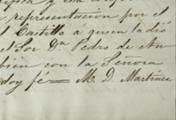 representacion por el
el Castillo á quien la dió
el Sor. Dn. Pedro de An
bien con la Señora
doy fé = M. D. Martinez